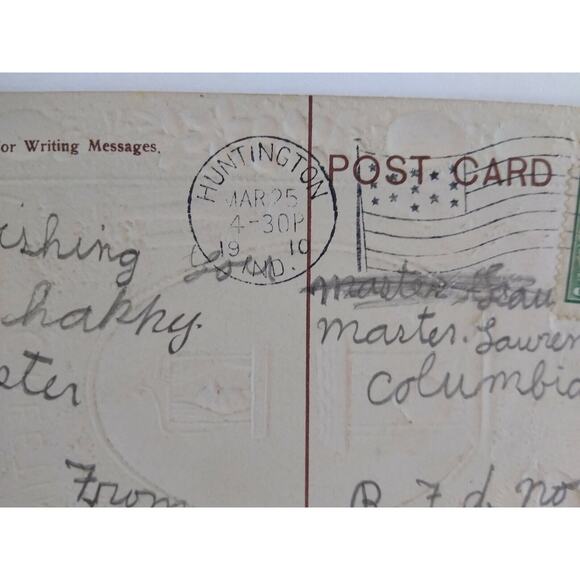 or Writing Messages.
POST CARD
HUNTINGTON
MAR 25
4-30P
19 10
IND.
ishing
happy.
ster
From
Master
Master. Lawren
Columbia
R. F. d. no